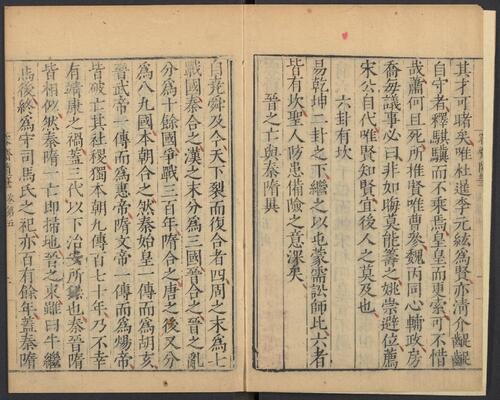 其才可睹矣唯杜暹李元紘爲賢亦清介齪齪
自守者釋騏驥而不乘焉皇皇而更索可不惜
哉蕭何且死所推賢唯曹參魏丙同心輔政房
喬每議事必曰非如晦莫能籌之姚崇避位薦
宋公自代唯賢知賢宜後人之莫及也
六卦有坎
易乾坤二卦之下繼之以屯蒙需訟師比六者
皆有坎聖人防患備險之意深矣
晉之亡與秦隋異
自堯舜及今天下裂而復合者四周之末爲七
戰國秦合之漢之末分爲三國晉合之晉之亂
分爲十餘國爭戰三百年隋合之唐之後又分
爲八九國本朝合之然秦始皇一傳而爲胡亥
晉武帝一傳而爲惠帝隋文帝一傳而爲煬帝
皆破亡其社稷獨本朝九傳百七十年乃不幸
有靖康之禍蓋三代以下治安所無也秦晉隋
皆相似然秦隋一亡即掃地晉之東雖曰牛繼
馬後終爲宋司馬氏之祀亦百有餘年蓋秦隋